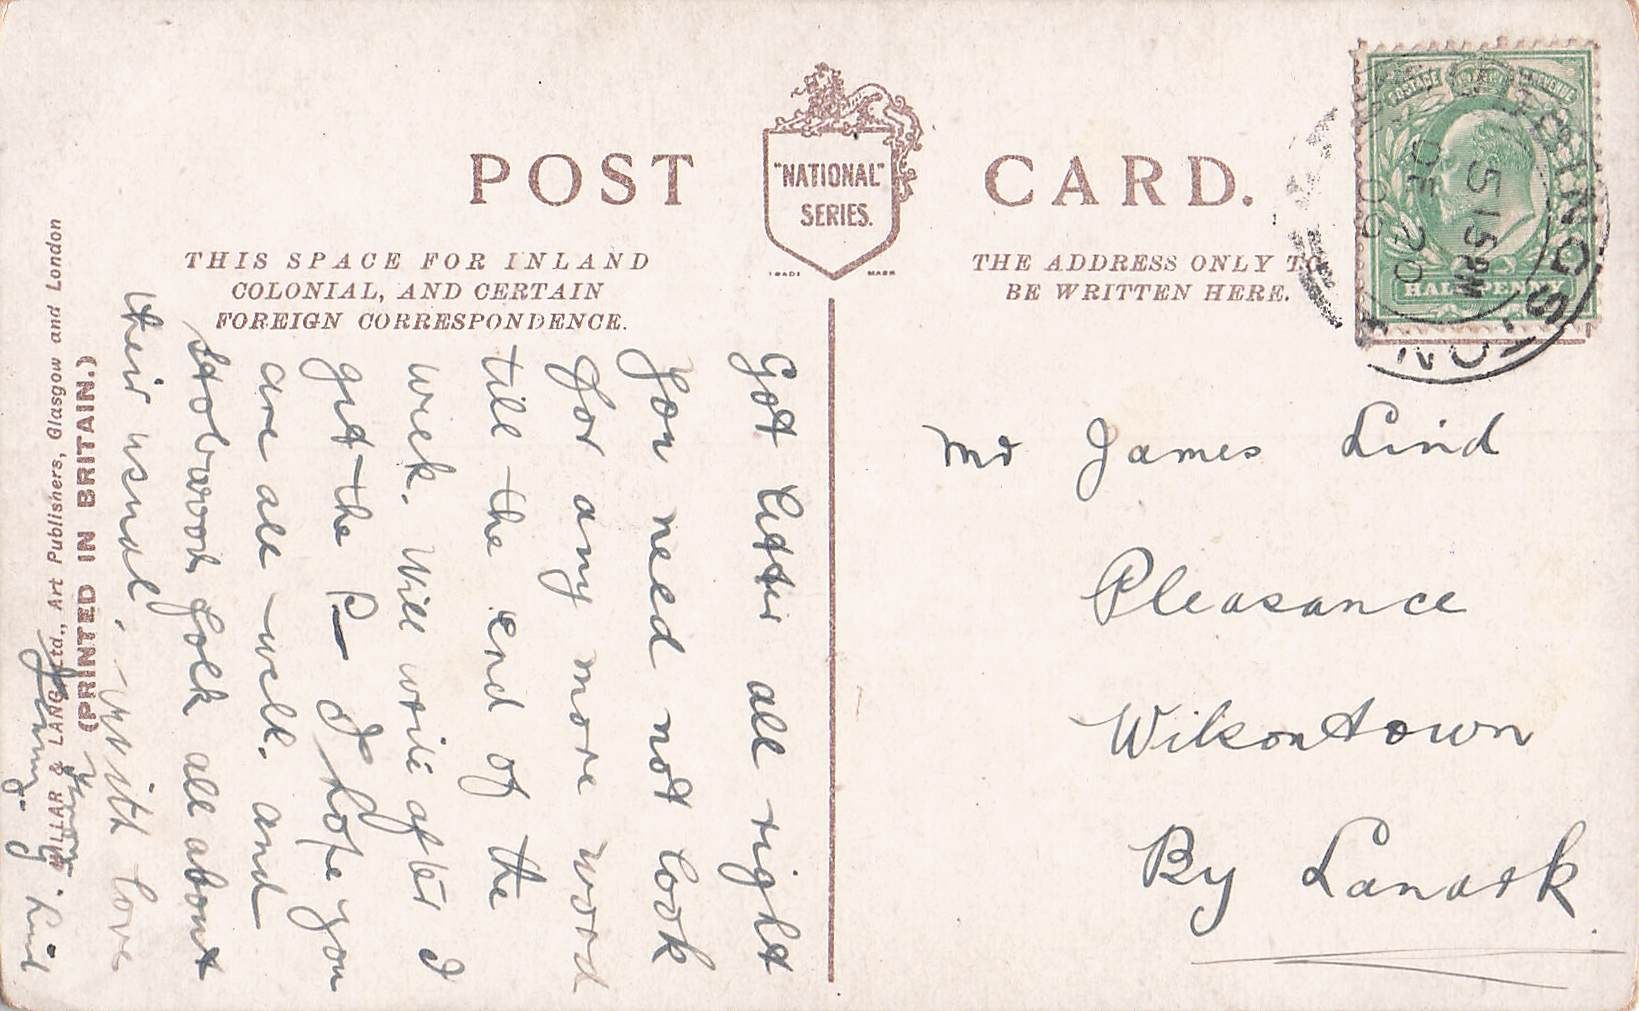 POST CARD.
"NATIONAL"
SERIES.
TRADE MARK
THIS SPACE FOR INLAND
COLONIAL, AND CERTAIN
FOREIGN CORRESPONDENCE.
THE ADDRESS ONLY TO
BE WRITTEN HERE.
POSTAGE REVENUE
HALFPENNY
5 15 PM
DE 20
09
Got letter all right
you need not look
for any more word
till the end of the
week. Will write after I
get the P I hope you
are all well. and
folk all about
their usual. with love
from
Lind
Mr James Lind
Pleasance
Wilsontown
By Lanark
MILLAR & LANG Ltd., Art Publishers, Glasgow and London
(PRINTED IN BRITAIN.)